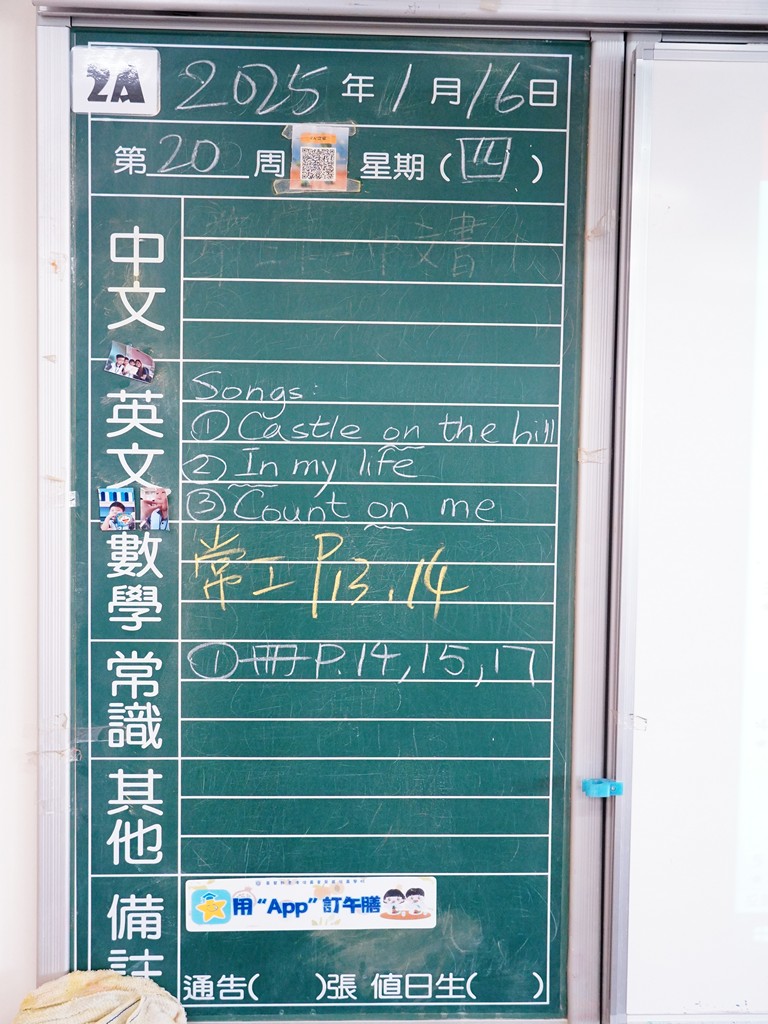 2A 2025年1月16日
第20周 星期(四)
中文
文書
英文
Songs:
① Castle on the hill
② In my life
③ Count on me
數學
常工 P13, 14
常識
① 冊 P.14, 15, 17
其他
備註
用 “App” 訂午膳
通告( )張 值日生( )